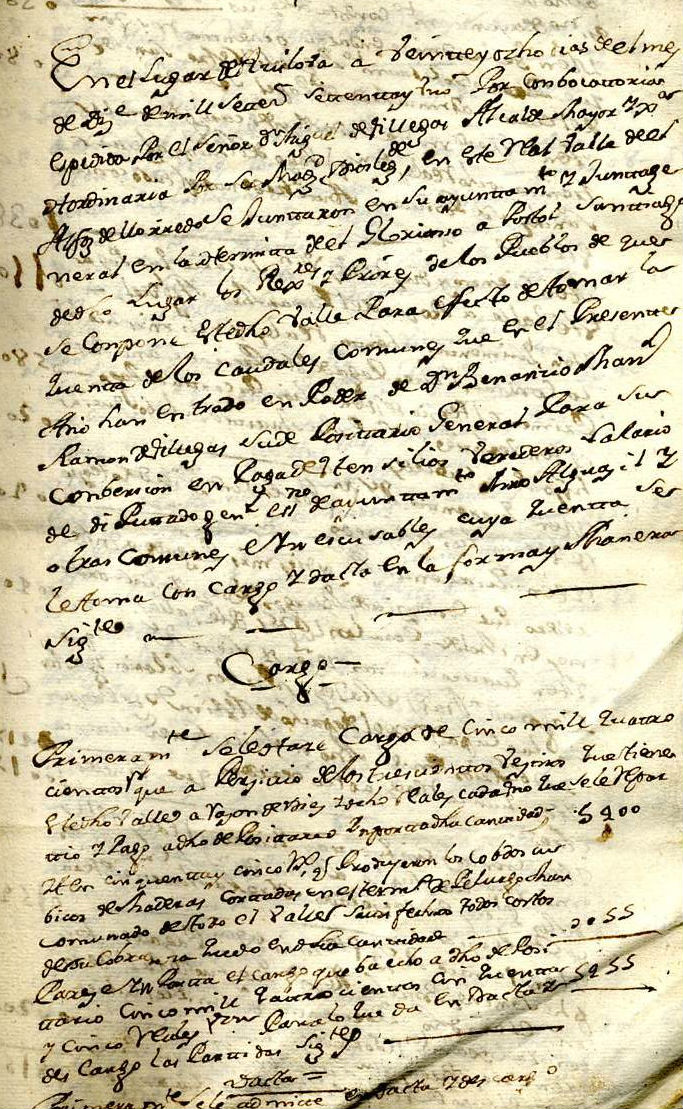 En el Lugar de a Veinte y ocho dias de el mes
de Dize de mill setecs settentta y uno Por Conbocattoria
Espedida Por el Señor Dn Miguel de Villegas Alcalde Mayor
Hordinario Por su Magd en este Real Valle de el
Alfoz de Lloredo se Junttaron en su ayunttamto y Juntta ge
neral en la Hermitta de el Glorioso aPostol Santtiago
de dho Lugar los Rexres y Prores de los Pueblos de que
se Conpone este dho Valle Para effecto de tomar la
quenta de los Caudales Comunes que en el Presente
Año han entrado en Poder de Dn Benancio
Ramon de Villegas su de Positario General Para su
Conbersion en Paga de Utensilios Verederos Salario
de diPuttado genl esno de ayunttamto Alguazil y
otras Comunes Ynescusables cuya quentta se
le toma con Cargo y datta en la forma y Manera
Sigte
Cargo
Primeramte se le haze Cargo de Cinco mill quattro
cienttos rs que a Perjuicio de los Vezinos que tiene
este dho Valle a Razon de Diez y ocho Reales cada uno que se le Repar
ttio y Pago a dho dePositario Ynportta dha canttidad 5400
Ytten cinquentta y cinco rs qe Produjeron los cobdos cu
bicos de Maderas Corttadas en el termo de
comunado de todo el Valle sattisfechos todos costos
de su Cobranza quedo en dha canttidad 0055
Pareze Ynportta el cargo que ba echo a dho dePosi
ttario Cinco mill quattrocienttos cinquentta
y Cinco Reales Vellon Para lo que da en Datta 5455
des Cargo las Parttidas Sigtes
Datta
Primeramte se le admitte en Datta y descargo